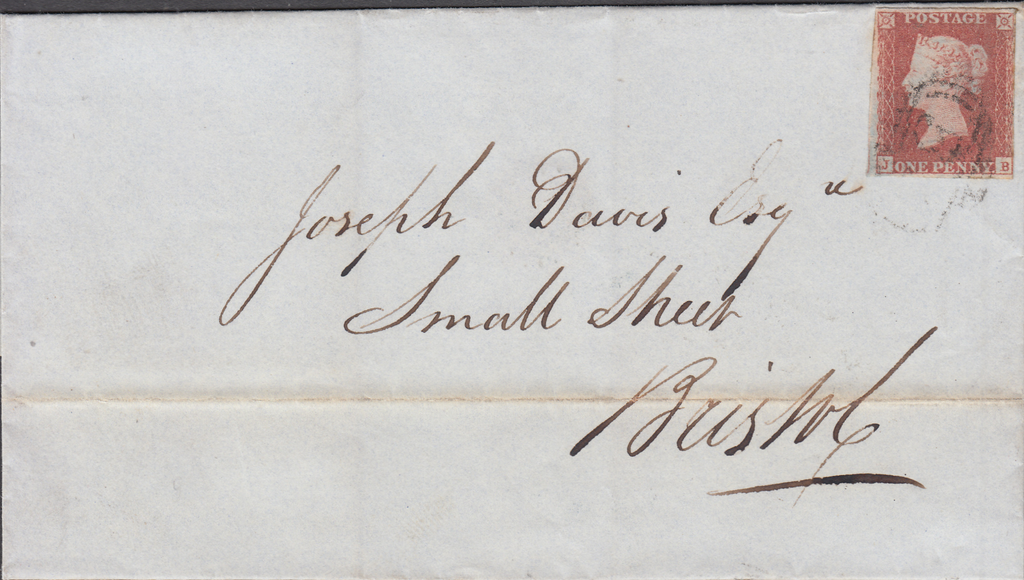 POSTAGE
J ONE PENNY. B
Joseph Davis Esqr
Small Street
Bristol